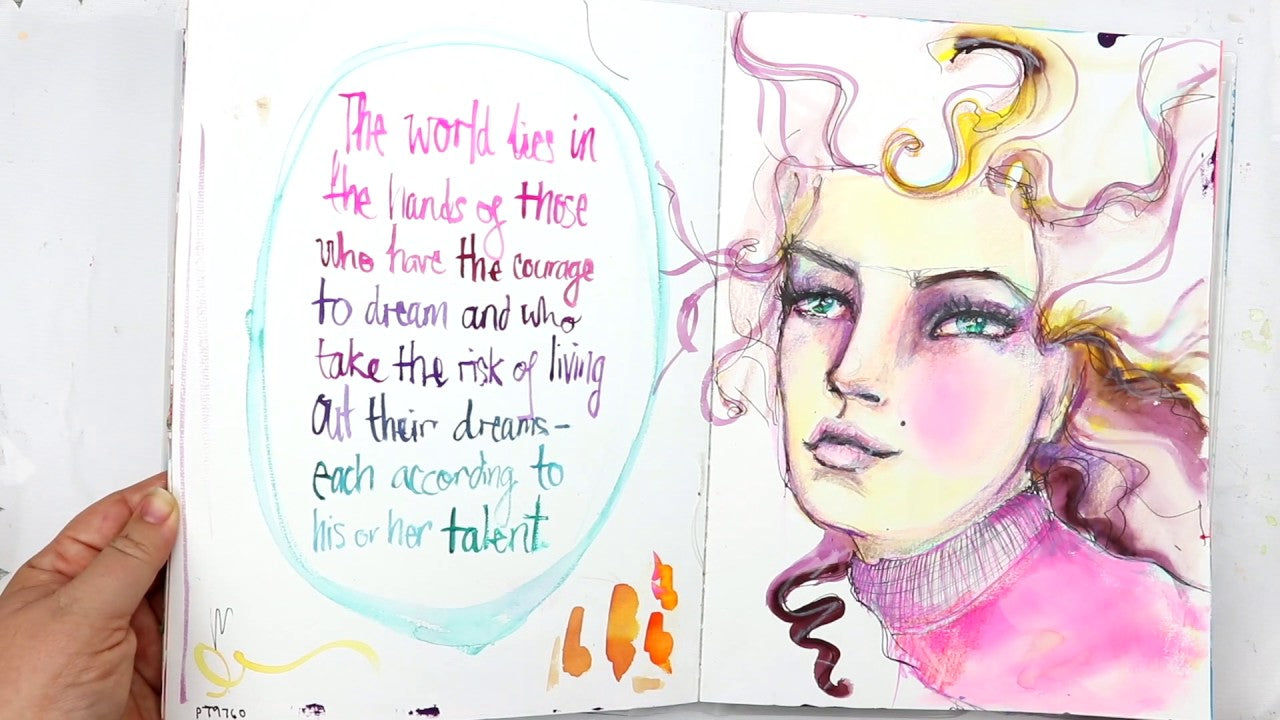 The world lies in
the hands of those
who have the courage
to dream and who
take the risk of living
out their dreams-
each according to
his or her talent.
PT9760